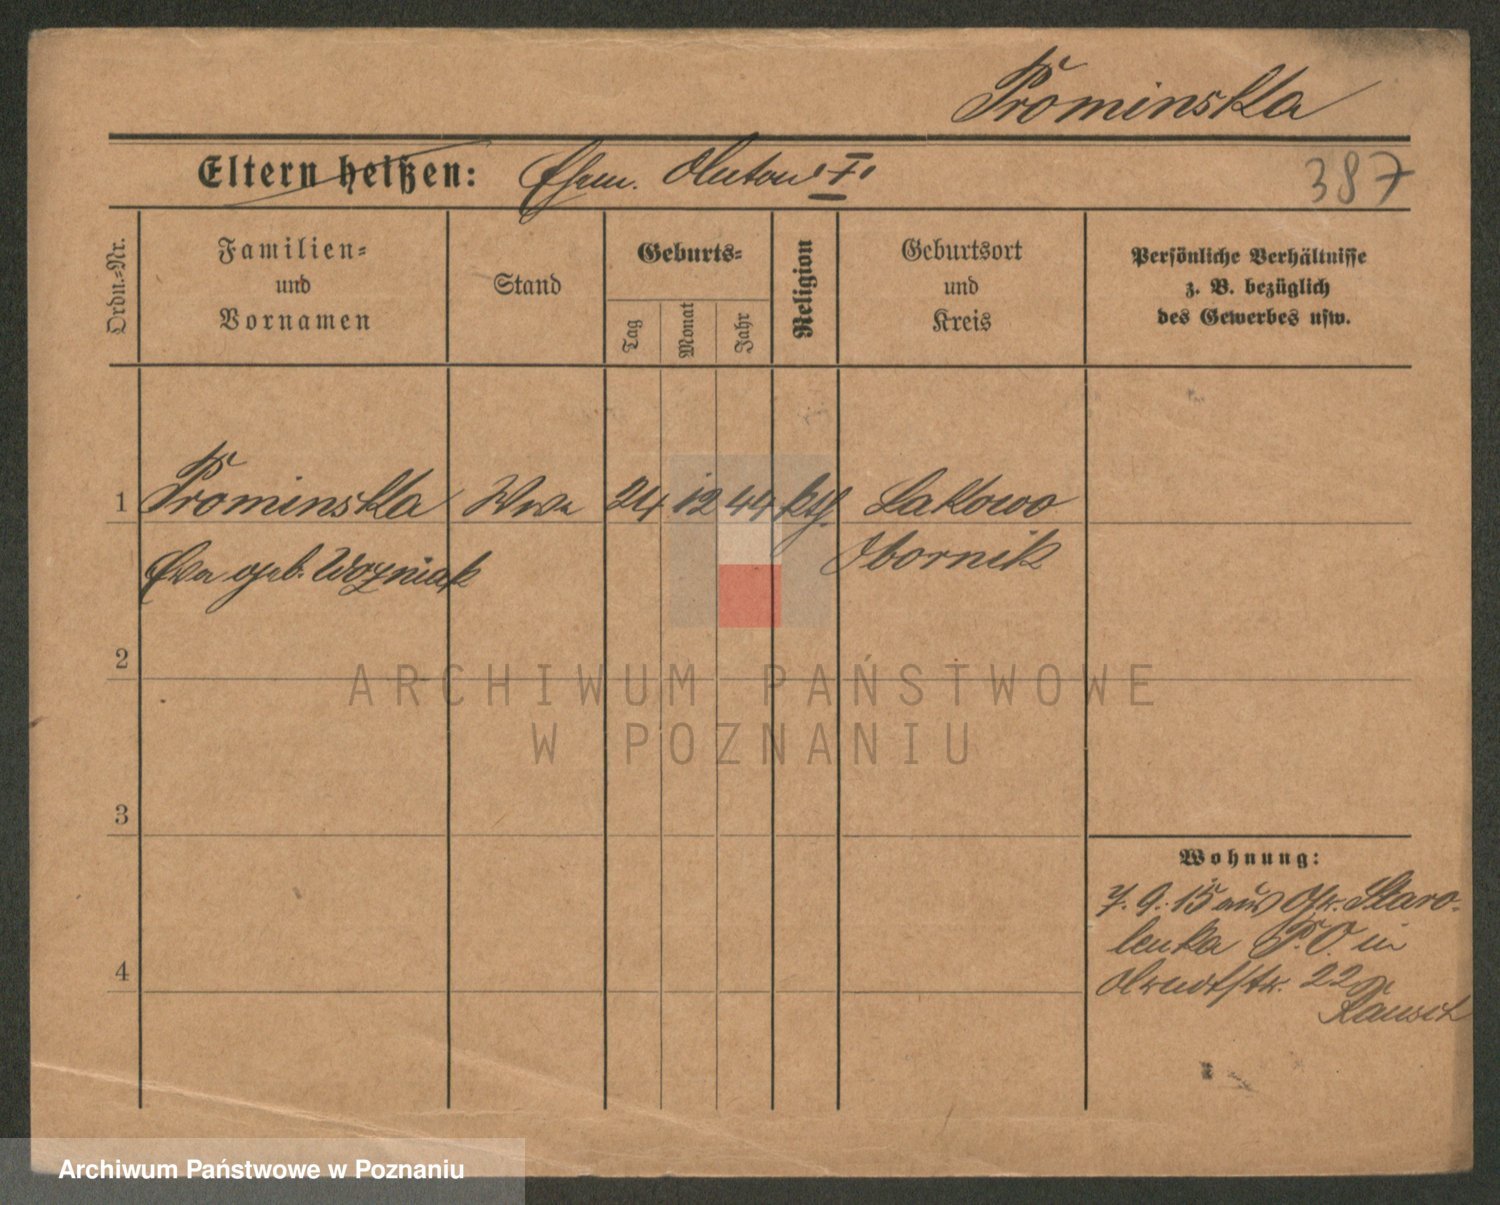 Prominska
Eltern heißen: Ehem. Anton I.
387
Ordn.-Nr.
Familien-
und
Vornamen
Stand
Geburts-
Tag
Monat
Jahr
Religion
Geburtsort
und
Kreis
Persönliche Verhältnisse
z. B. bezüglich
des Gewerbes usw.
1 Prominska Wwe 24 12 44 kth. Lakowo
Eva geb. Wozniak Obornik
2
ARCHIWUM PAŃSTWOWE
W POZNANIU
3
Wohnung:
7. 9. 15 aus Gr. Staro-
lenka P.O. in
Arndtstr. 22
Rausch
4
Archiwum Państwowe w Poznaniu